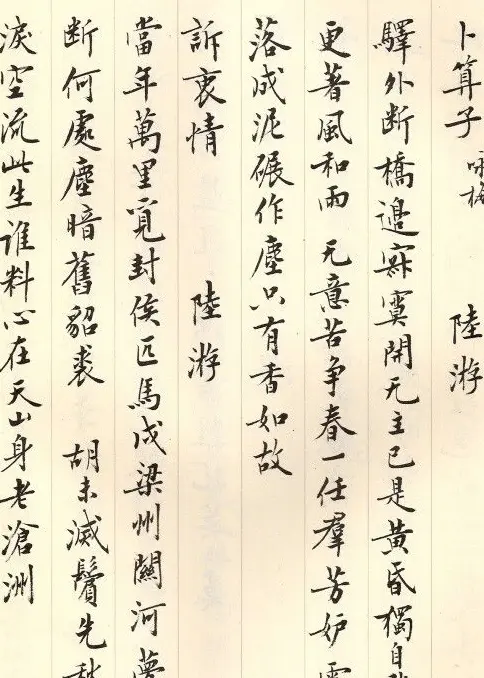 卜算子 咏梅 陸游
驛外断橋邉寂寞開无主已是黄昏獨自
更著風和雨 无意苦争春一任羣芳妒
落成泥碾作塵只有香如故
訴衷情 陸游
當年萬里覓封侯匹馬戍梁州關河夢
断何處塵暗舊貂裘 胡未滅鬢先
淚空流此生誰料心在天山身老滄洲